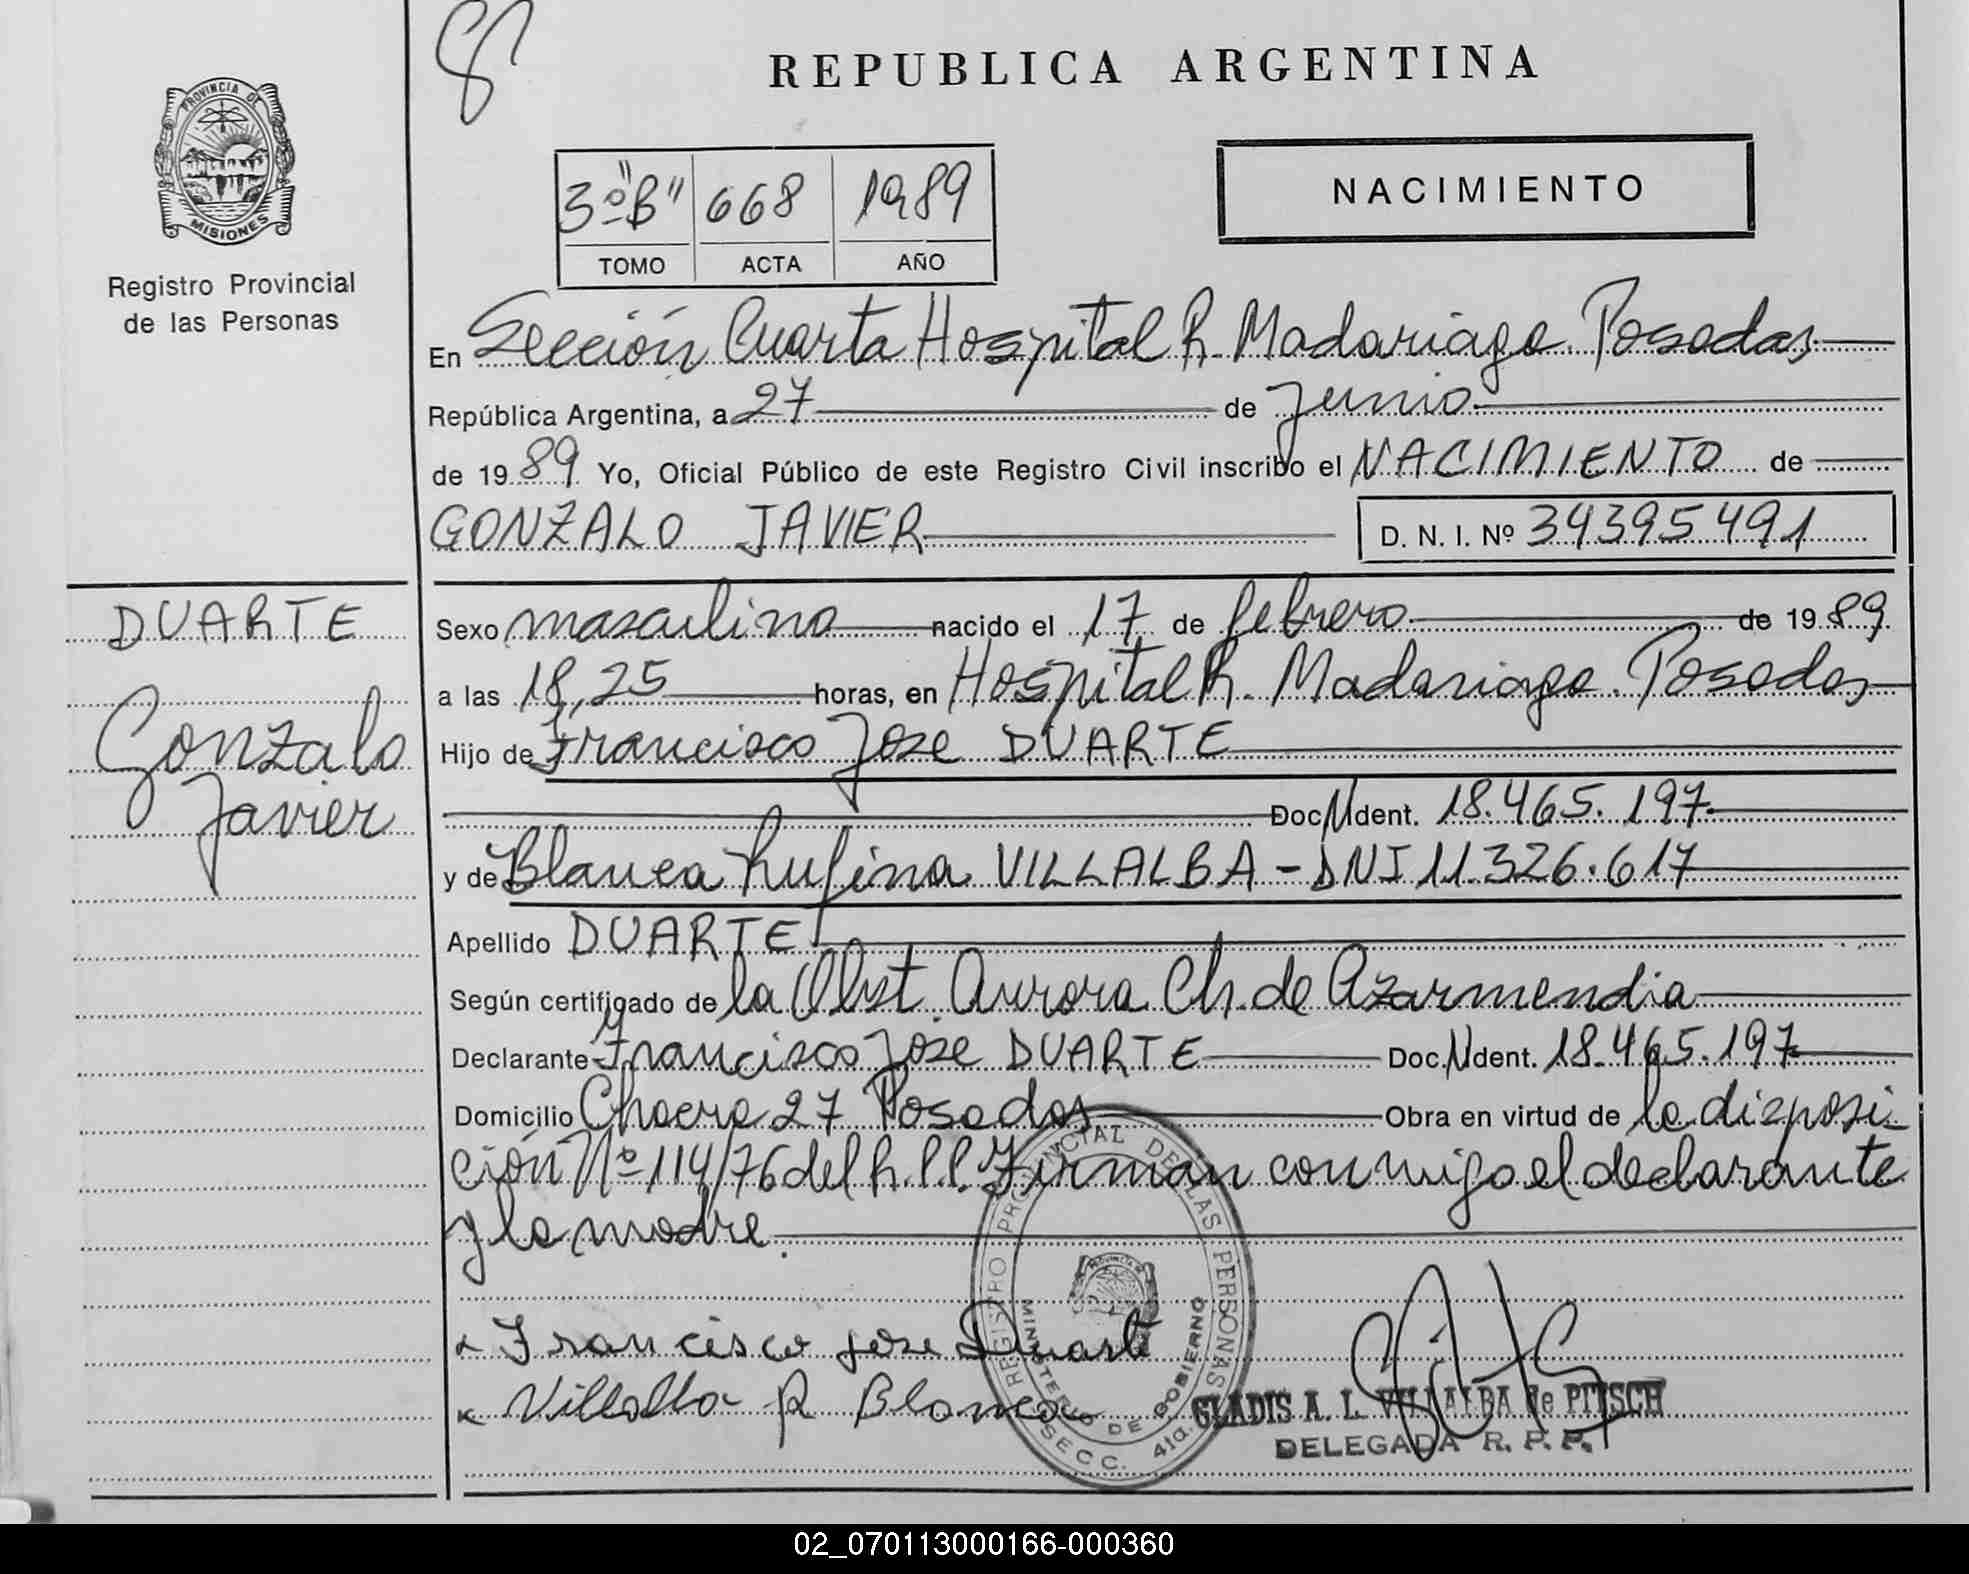 REPUBLICA ARGENTINA
PROVINCIA DE
MISIONES
Registro Provincial
de las Personas
3º "B" 668 1989
TOMO ACTA AÑO
NACIMIENTO
En Sección Cuarta Hospital R. Madariaga. Posadas
República Argentina, a 27 de Junio
de 1989 Yo, Oficial Público de este Registro Civil inscribo el NACIMIENTO de
GONZALO JAVIER D. N. I. Nº 34395491
DUARTE
Gonzalo
Javier
Sexo masculino nacido el 17 de febrero de 1989
a las 18,25 horas, en Hospital R. Madariaga. Posadas
Hijo de Francisco Jose DUARTE
Doc. Ident. 18.465.197
y de Blanca Rufina VILLALBA - DNI 11.326.617
Apellido DUARTE
Según certificado de la Obst. Aurora Ch. de Azarmendia
Declarante Francisco Jose DUARTE Doc. Ident. 18.465.197
Domicilio Chacra 27 Posadas Obra en virtud de la disposi-
ción Nº 114/76 del R.P.P. Firman conmigo el declarante
y la madre.
Francisco jose Duarte
Villalba R Blanca
REGISTRO PROVINCIAL DE LAS PERSONAS
MINISTERIO DE GOBIERNO
SECC. 4ta.
GLADIS A. L. VILLALBA de PITSCH
DELEGADA R. P. P.
02_070113000166-000360